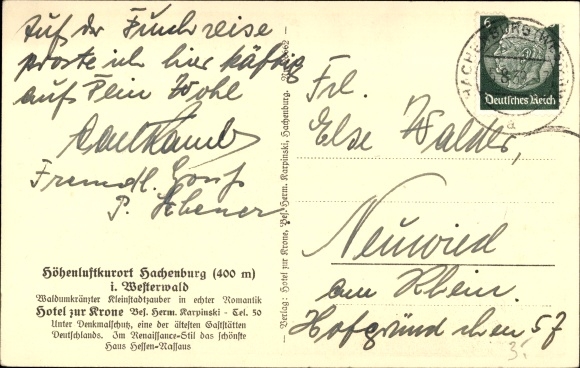 Auf der Durchreise
proste ich hier kräftig
auf Dein Wohl
Freundl. Gruß
P.
Höhenluftkurort Hachenburg (400 m)
i. Westerwald
Waldumkränzter Kleinstadtzauber in echter Romantik
Hotel zur Krone Bes. Herm. Karpinski - Tel. 50
Unter Denkmalschutz, eine der ältesten Gaststätten
Deutschlands. Im Renaissance-Stil das schönste
Haus Hessen-Nassaus
– Verlag: Hotel zur Krone, Bes. Herm. Karpinski, Hachenburg.
6
Deutsches Reich
a
Frl.
Else Walder,
Neuwied
am Rhein.
Hofgründchen 57
3.